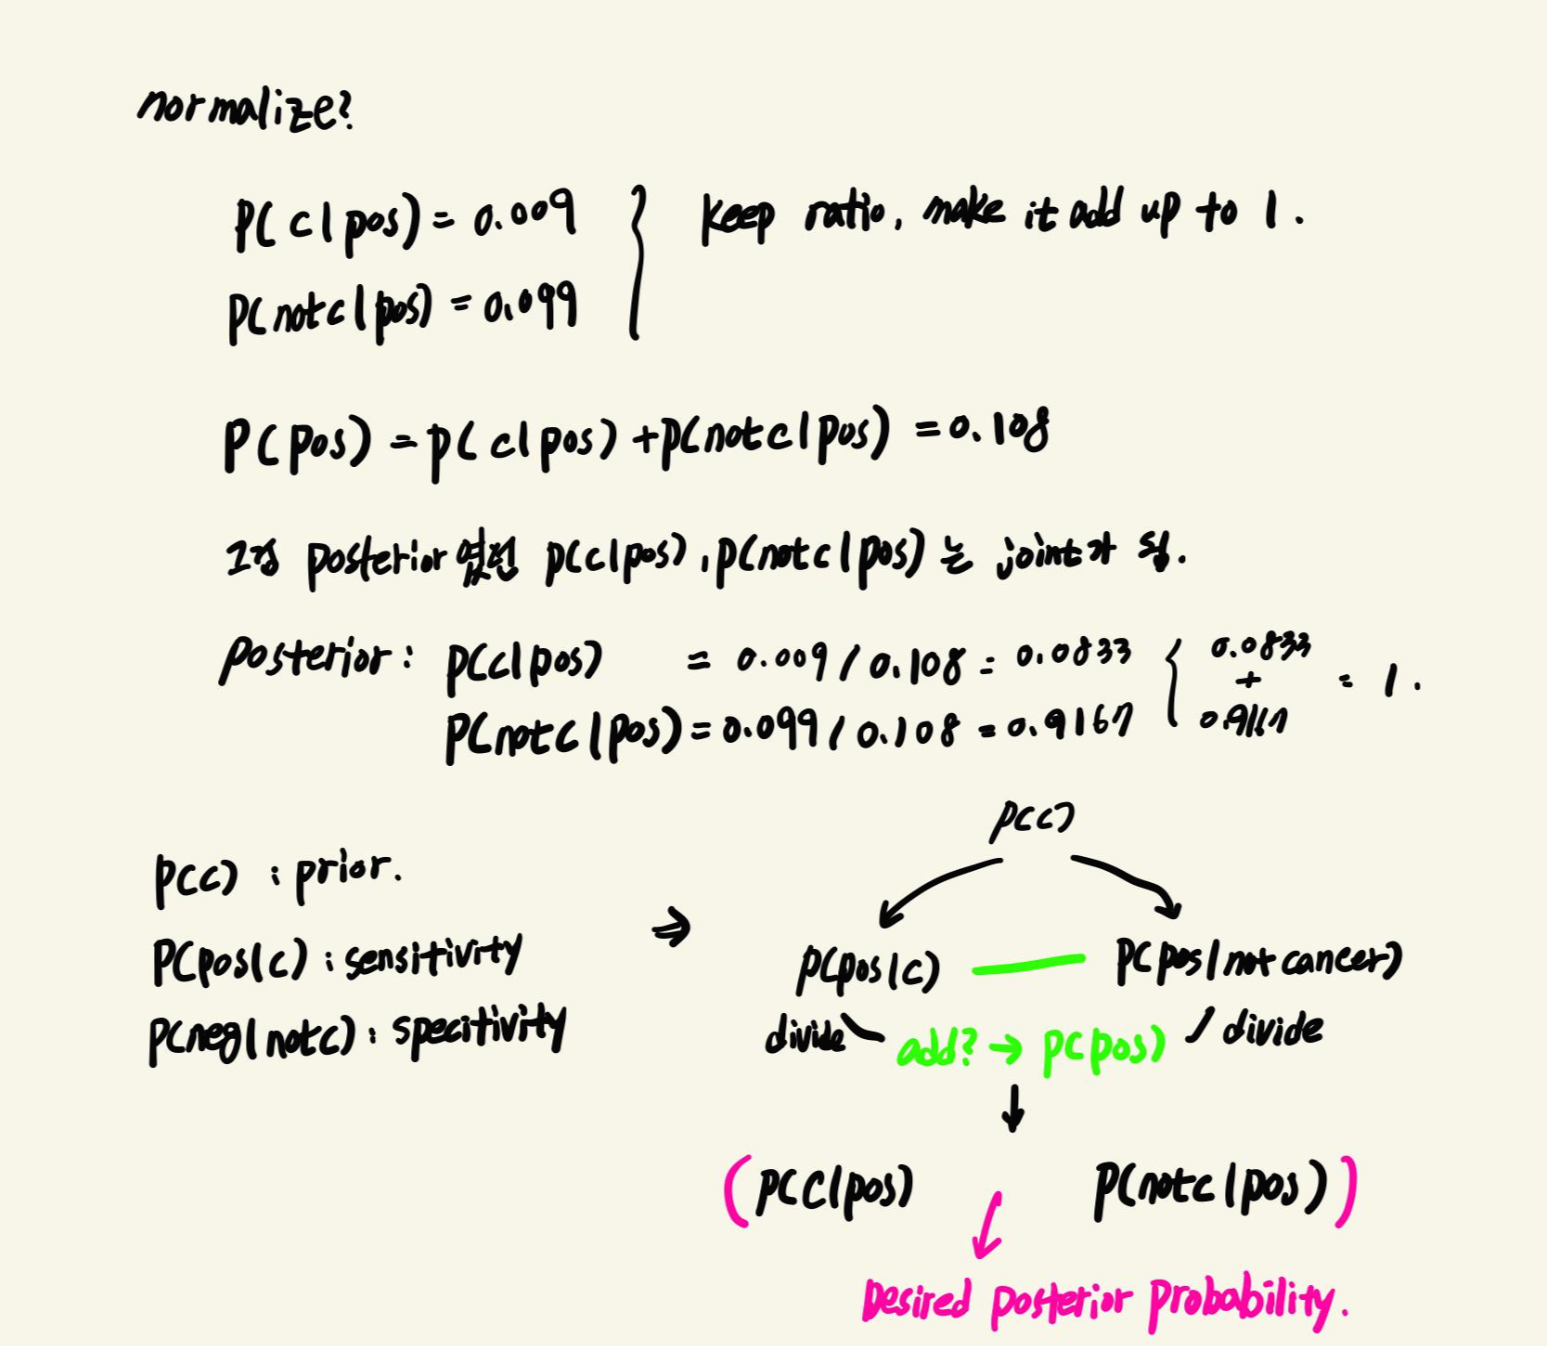 normalize?
P(c|pos) = 0.009
keep ratio, make it add up to 1.
P(notc|pos) = 0.099
P(pos) = p(c|pos) + p(notc|pos) = 0.108
그냥 posterior 없던 p(c|pos), p(notc|pos) 는 joint가 됨.
posterior: p(c|pos) = 0.009 / 0.108 = 0.0833
p(notc|pos) = 0.099 / 0.108 = 0.9167
0.0833
+
0.9167
= 1.
p(c) : prior.
p(pos|c) : sensitivity
p(neg|notc) : specitivity
⇒
p(c)
p(pos|c)
p(pos|not cancer)
divide
add? → p(pos)
divide
(p(c|pos) p(notc|pos))
Desired posterior probability.